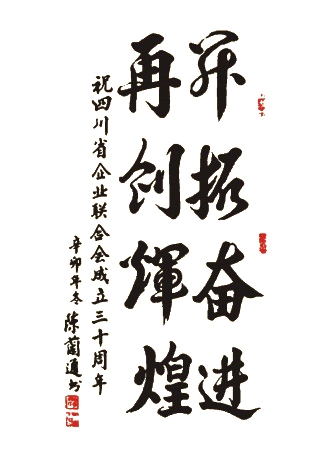 开拓奋进
再创煇煌
祝四川省企业联合会成立三十周年
辛卯年冬 陈蘭通书